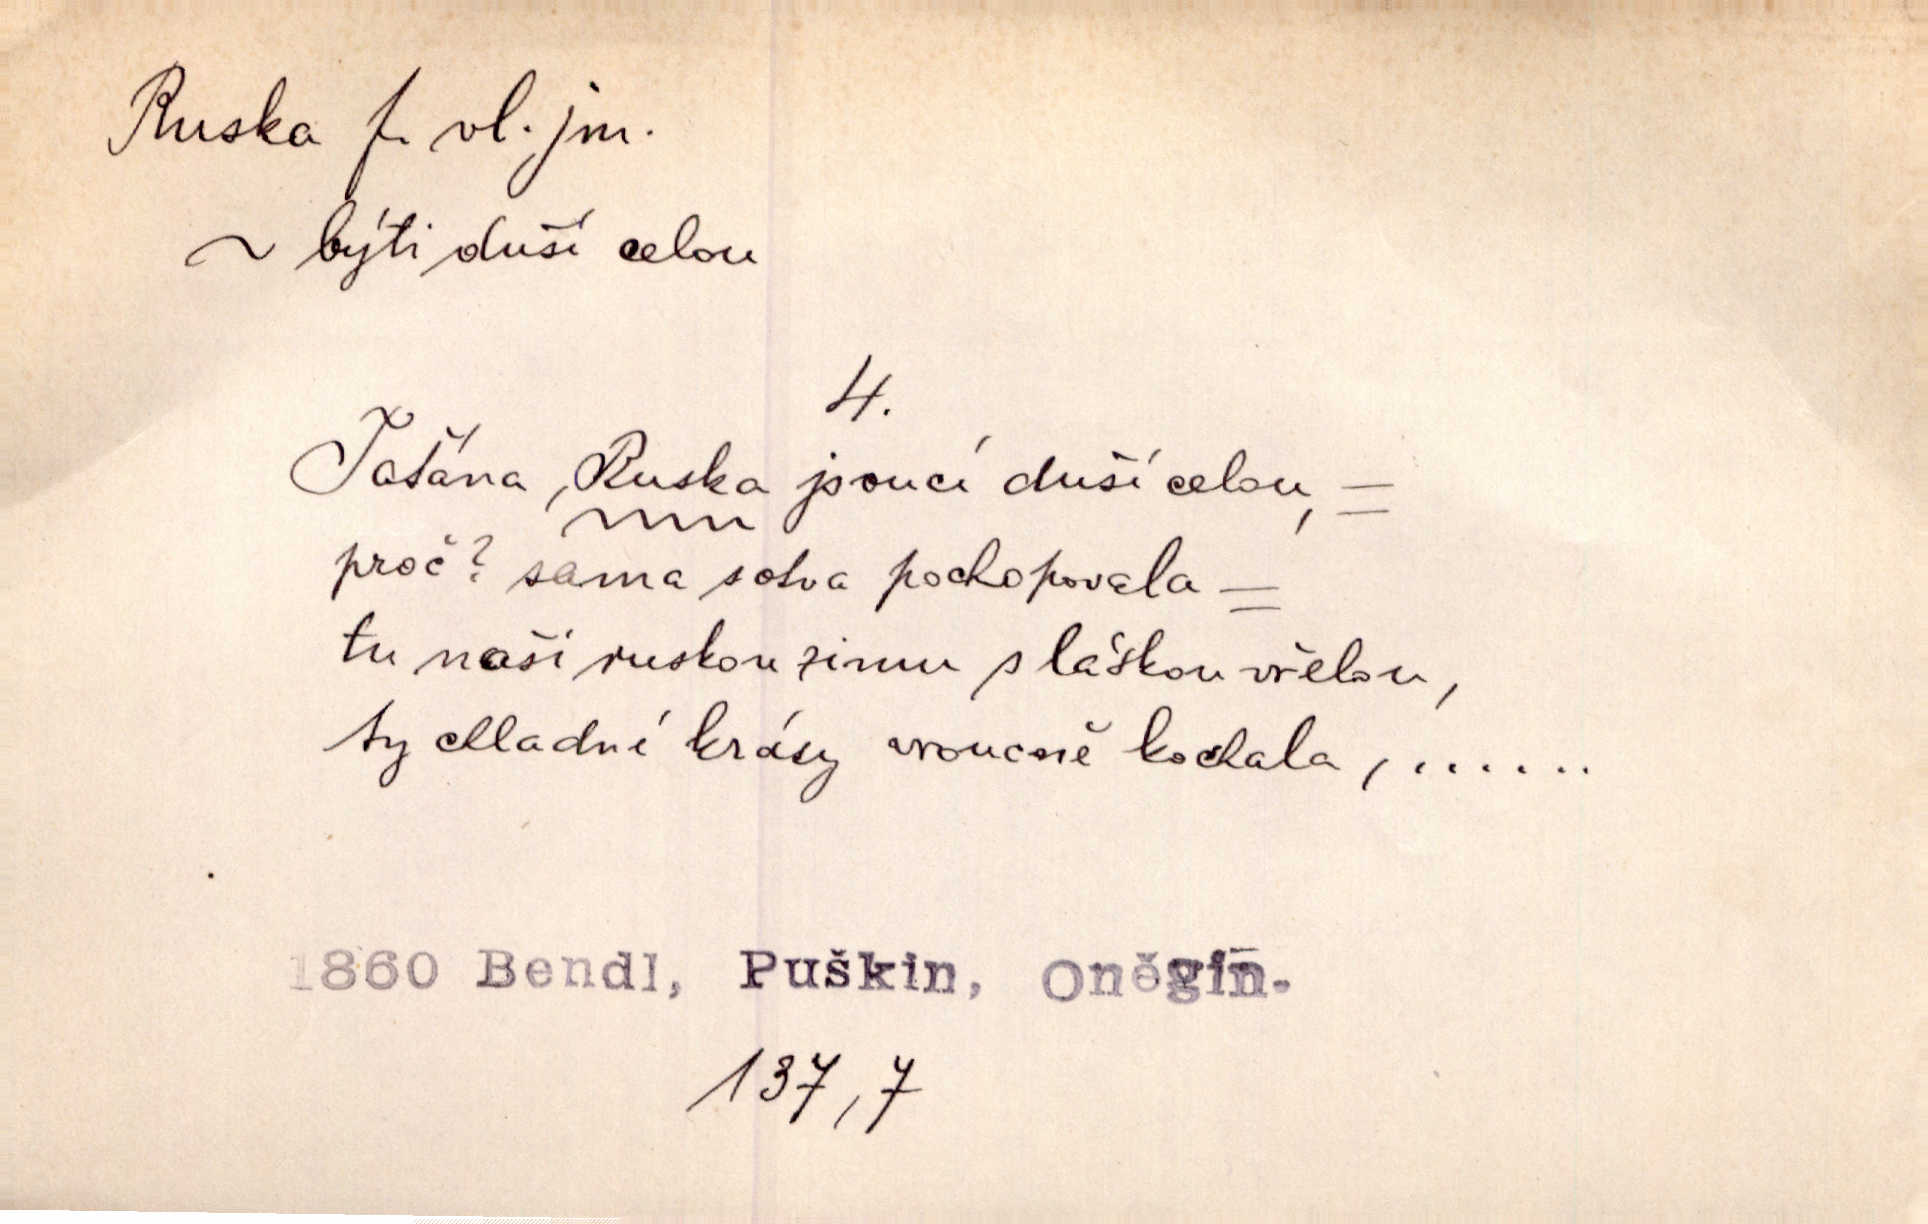 Ruska f. vl. jm.
~ býti duší celou
4.
Taťána, Ruska jsoucí duší celou, =
proč? sama sotva pochopovala =
tu naši ruskou zimu s láskou vřelou,
ty chladné krásy vroucně kochala, ......
1860 Bendl, Puškin, Oněgin.
137,7